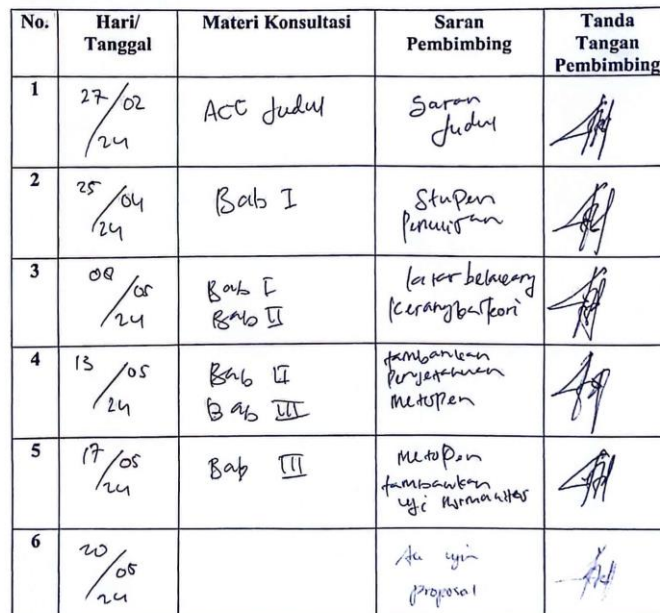 No.
Hari/
Tanggal
Materi Konsultasi
Saran
Pembimbing
Tanda
Tangan
Pembimbing
1
27/02/24
ACC Judul
Saran
Judul
2
25/04/24
Bab I
Stupen
Penulisan
3
/05/24
Bab I
Bab II
latar belakang
kerangka teori
4
13/05/24
Bab II
Bab III
tambahkan
metopen
5
17/05/24
Bab III
metopen
tambahkan
uji normalitas
6
20/05/24
ujin
proposal